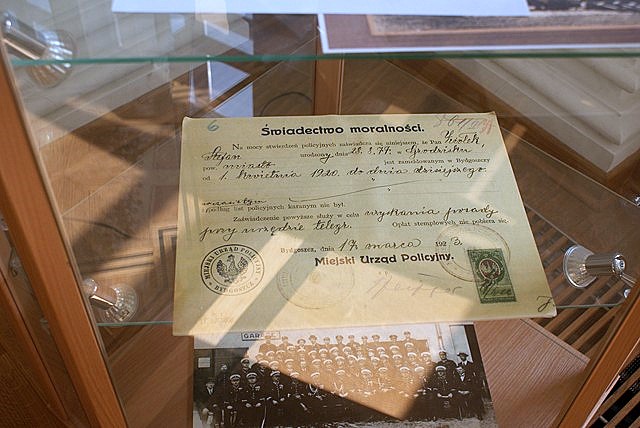 6
Świadectwo moralności.
Na mocy stwierdzeń policyjnych zaświadcza się niniejszem, że Pan Ziółek
Stefan urodzony dnia 28.8.74. w Grodzisku
pow. miasto jest zameldowanym w Bydgoszczy
od 1. kwietnia 1920. do dnia dzisiejszego.
i podług list policyjnych karanym nie był.
Zaświadczenie powyższe służy w celu uzyskania posady
przy urzędzie telegr. Opłat stemplowych nie pobiera się.
Bydgoszcz, dnia 17 marca 1923.
Miejski Urząd Policyjny.
MIEJSKI URZĄD POLICYJNY
BYDGOSZCZ
GARAGE